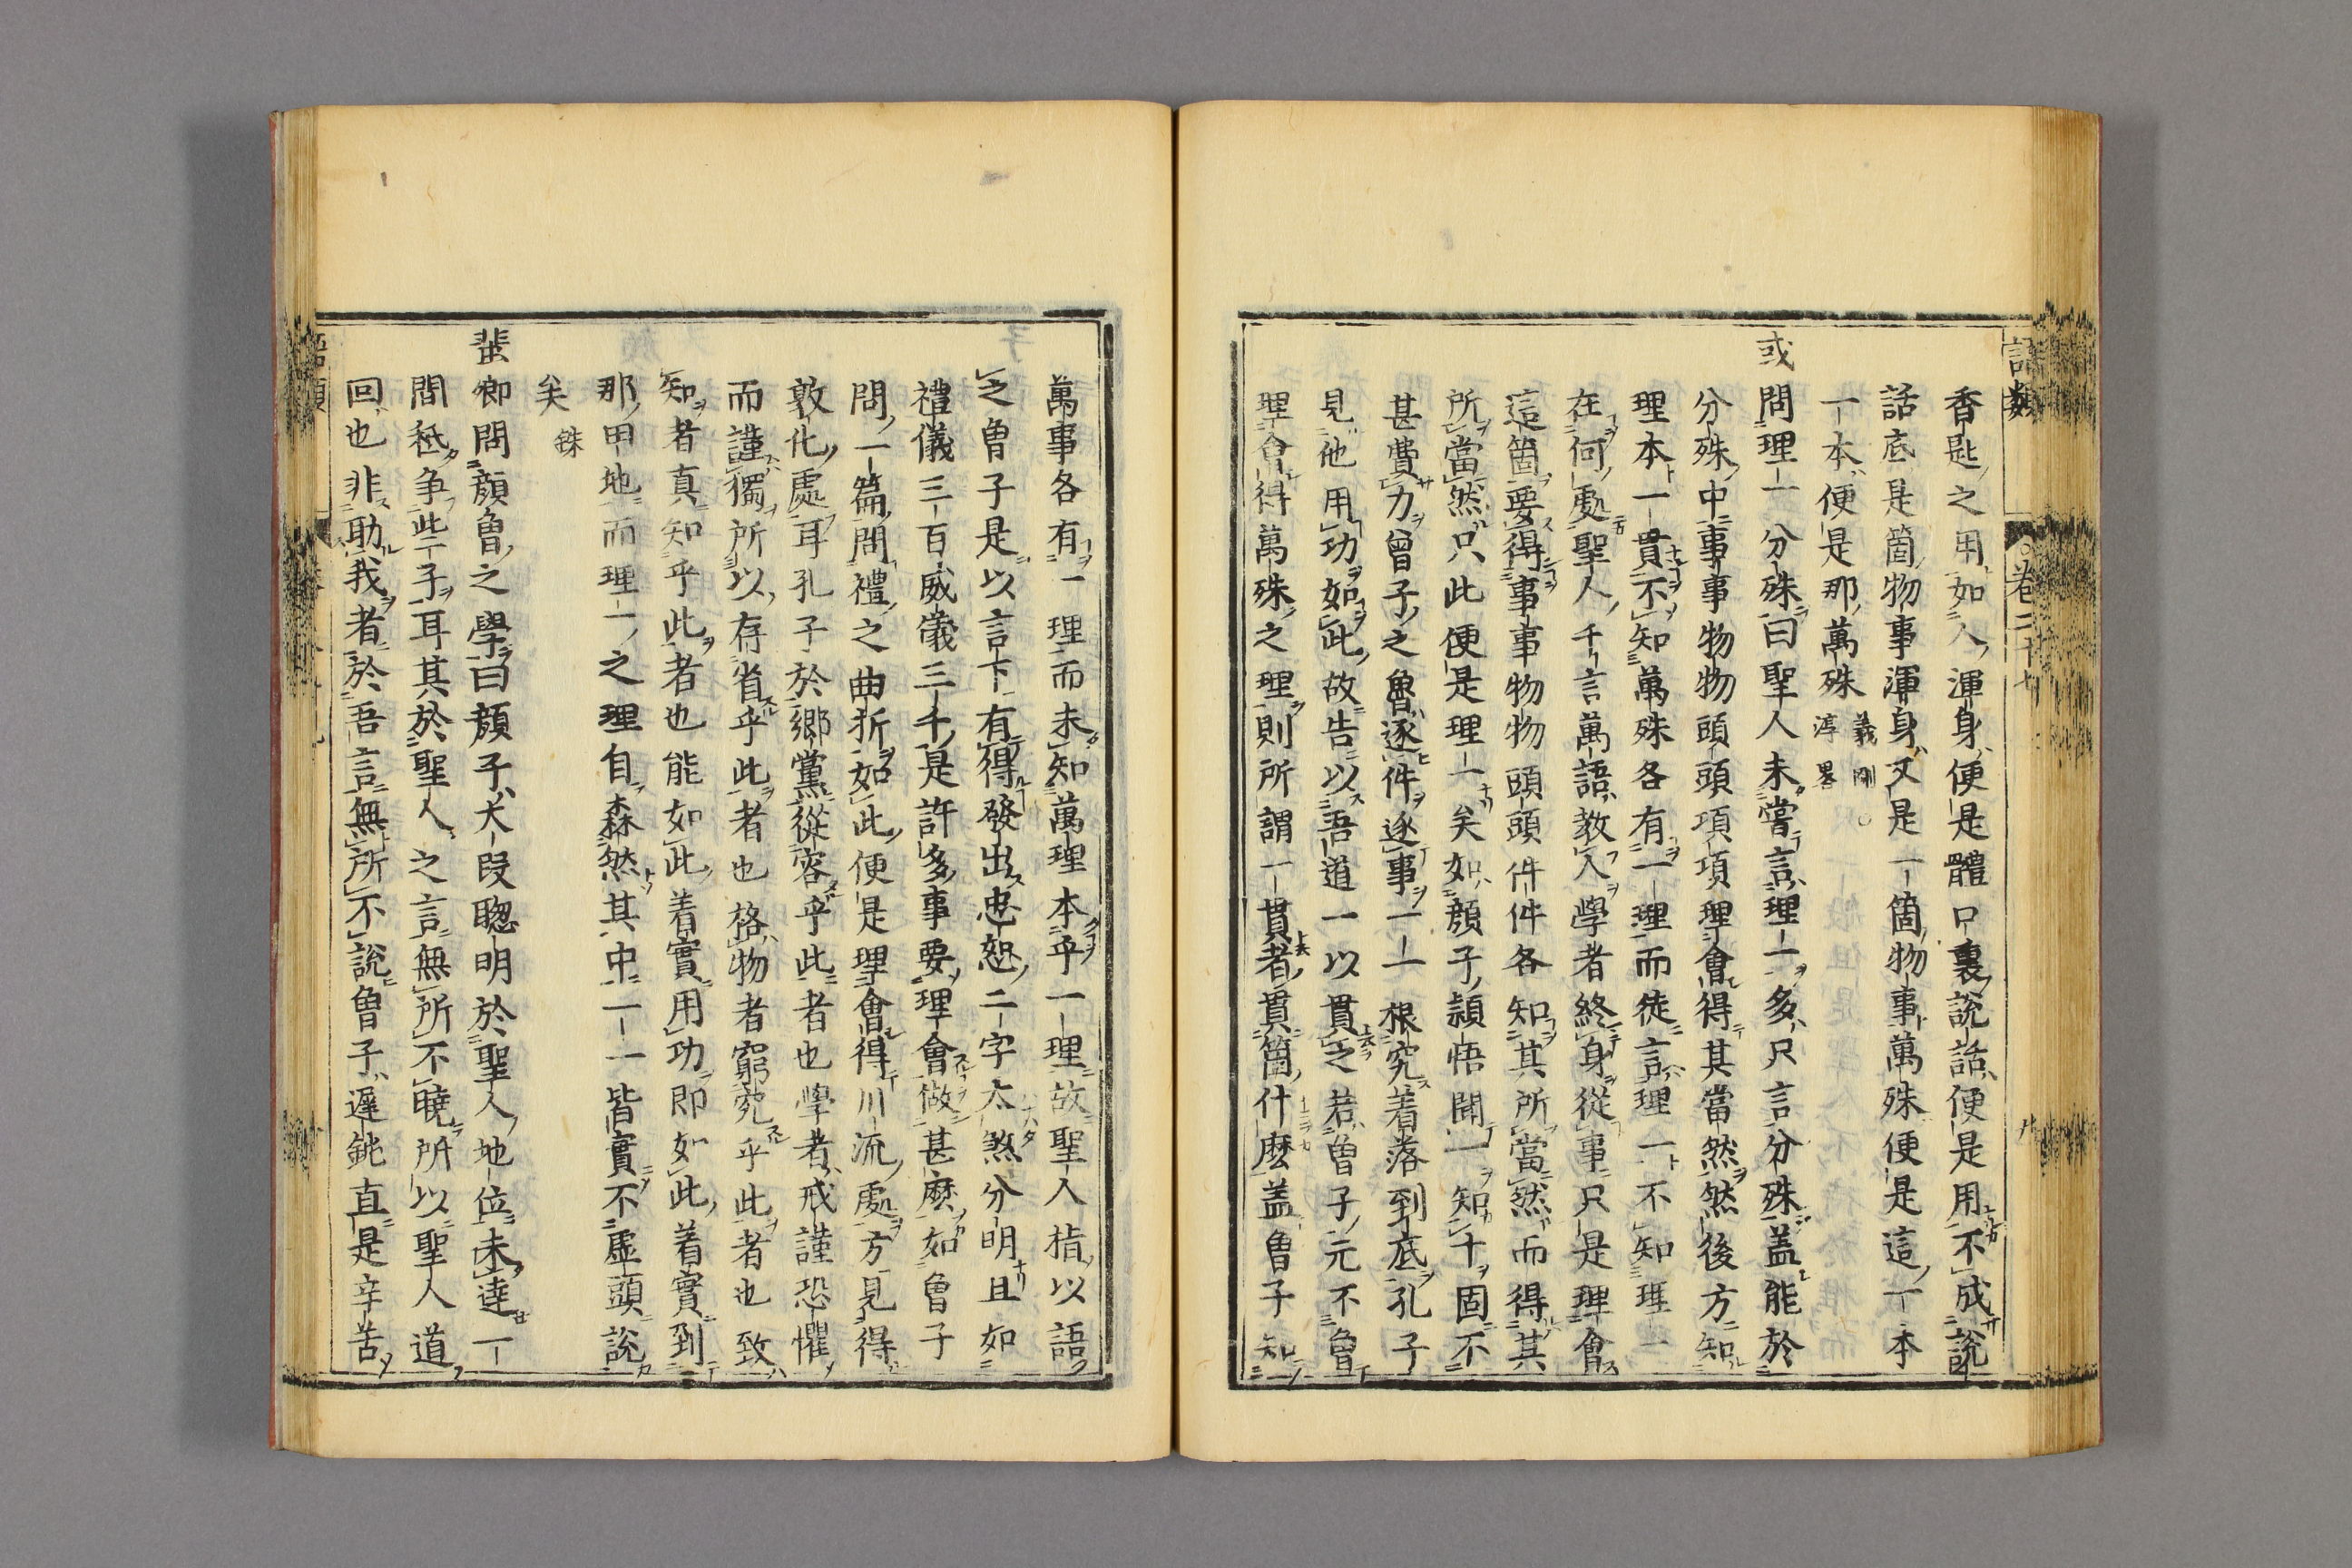 語類
卷二十七
香匙之用如人渾身便是體口裏說話便是用不成說
話底是箇物事渾身又是一箇物事萬殊便是這一本
一本便是那萬殊 義剛 淳畧
或問理一分殊曰聖人未嘗言理一多只言分殊盖能於
分殊中事事物物頭頭項項理會得其當然然後方知
理本一貫不知萬殊各有一理而徒言理一不知理一
在何處聖人千言萬語教人學者終身從事只是理會
這箇要得事事物物頭頭件件各知其所當然而得其
所當然只此便是理一矣如顔子頴悟聞一知十固不
甚費力曾子之魯逐件逐事一一根究着落到底孔子
見他用功如此故告以吾道一以貫之若曾子元不曾
理會得萬殊之理則所謂一貫者貫箇什麽盖曾子知
萬事各有一理而未知萬理本乎一理故聖人指以語
之曾子是以言下有得發出忠恕二字太煞分明且如
禮儀三百威儀三千是許多事要理會做甚麽如曾子
問一篇問禮之曲折如此便是理會得川流處方見得
敦化處耳孔子於鄉黨從容乎此者也學者戒謹恐懼
而謹獨所以存省乎此者也格物者窮究乎此者也致
知者真知乎此者也能如此着實用功即如此着實到
那田地而理一之理自森然其中一一皆實不虛頭說
矣 銖
蜚卿問顔曾之學曰顔子大段聰明於聖人地位未達一
間秪爭些子耳其於聖人之言無所不曉所以聖人道
回也非助我者於吾言無所不說曾子遲鈍直是辛苦